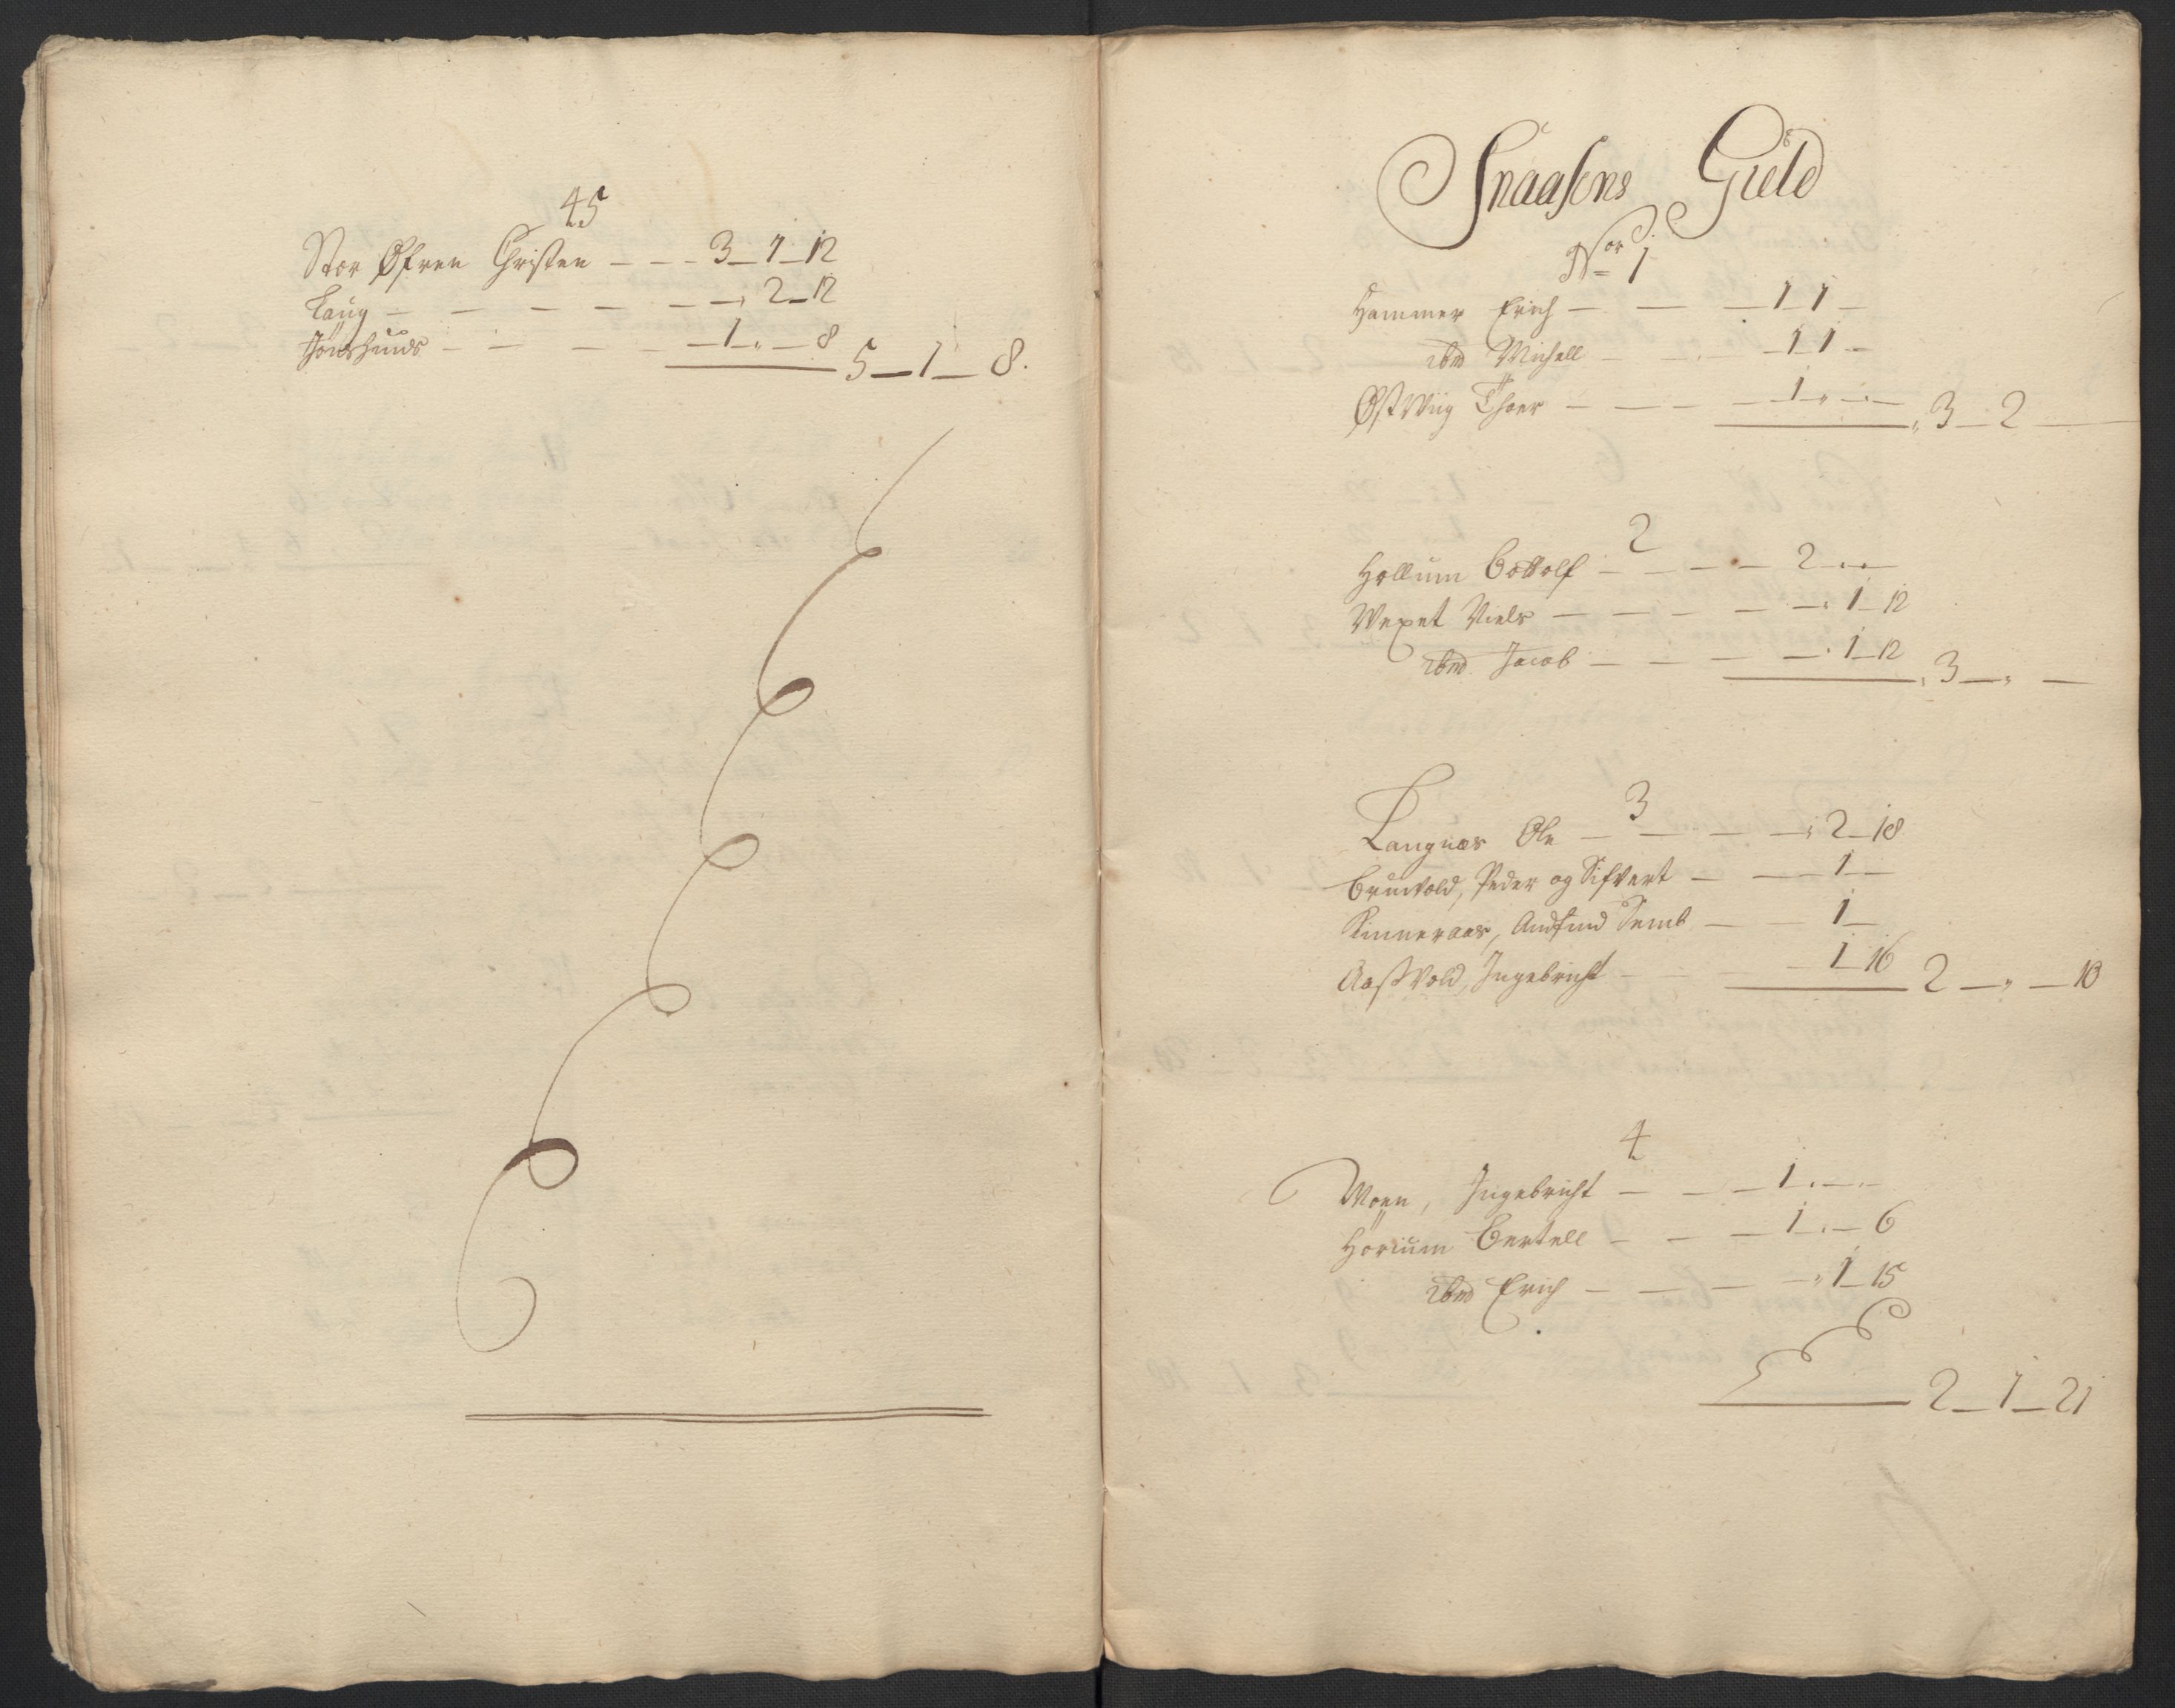 45
Stor Øfren Christen — — — 3 — 1 — 12
Laug — — — — — — — " 2 — 12
— — — — — 1 " — 8
5 — 1 — 8.
Snaasens Gield
No 1
Hammer Erich — — — 1 1 —
ibm Michell — — — 1 1 —
Østwiig Thoer — — — — 1 " — " —
3 — 2 —
2
Hollum Bottolf — — — — 2 " "
Wexet Niels — — — — — " 1 — 12
ibm Jacob — — — — " 1 — 12
3 — " —
3
Langnæs Ole — — — — " 2 — 18
Bruvold, Peder og Sifvert — — 1 —
Kinneraas, Amfind Semb — — 1 —
Aasvold, Ingebricht — — — 1 — 16
2 — " — 10
4
Moen, Ingebricht — — — 1 " — "
Hörium Bertell — — — 1 " — 6
ibm Erich — — — — " 1 — 15
2 — 1 — 21